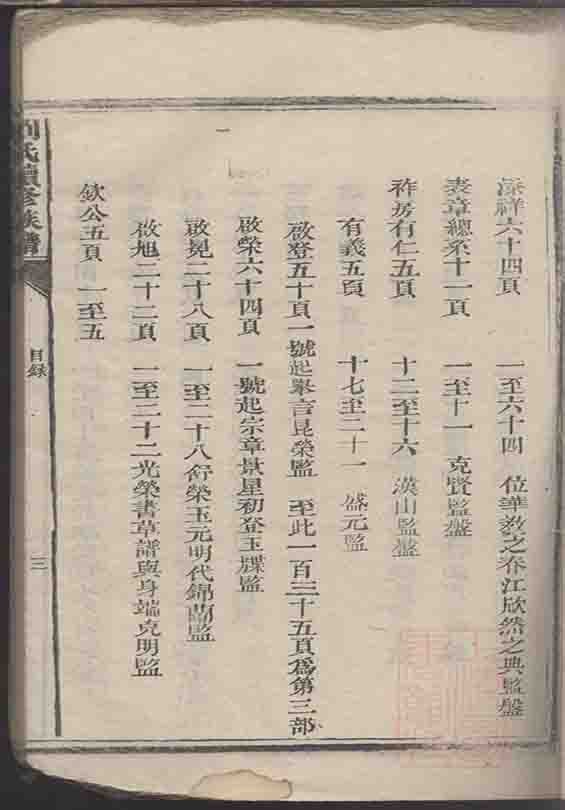 添祥六十四頁 一至六十四 位華教之春江欣然之典監盤
表章總系十一頁 一至十一 克賢監盤
祚房有仁五頁 十二至十六 漢山監盤
有義五頁 十七至二十一 盛元監
啟登五十頁一號起舉言昆榮監 至此一百三十五頁為第三部
啟榮六十四頁 一號起宗章景星初登玉牒監
啟晃二十八頁 一至二十八舒榮玉元明代錦蘭監
啟旭二十二頁 一至二十二光榮書草譜與身端克明監
欽公五頁 一至五
劉氏續修族譜 目錄 三